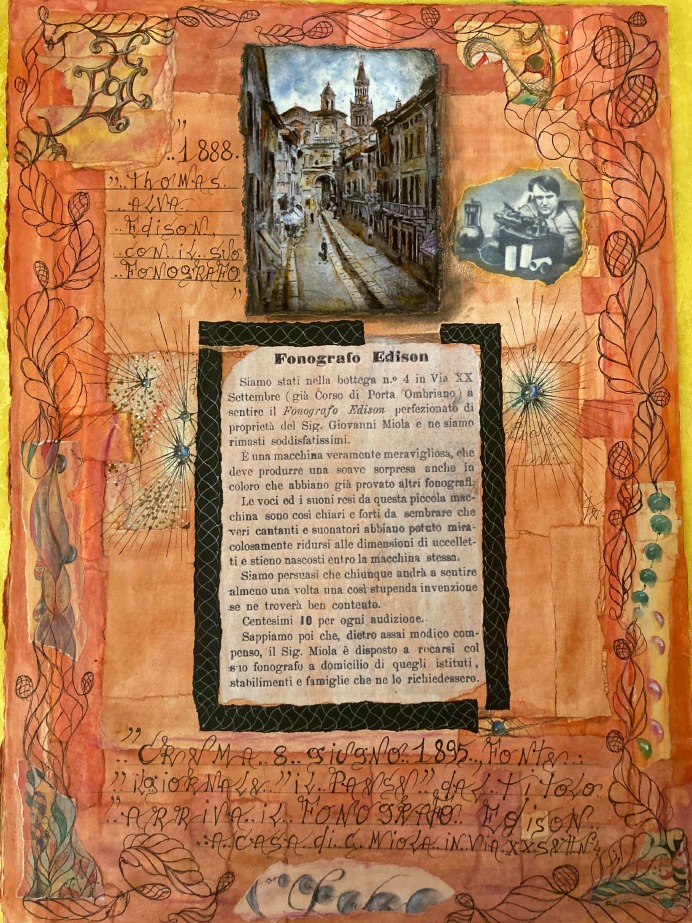 "
..1888.
..THOMAS..
..ALVA
..Edison,
..CON IL SUO
..FONOGRAFO
"
Fonografo Edison
Siamo stati nella bottega n.º 4 in Via XX
Settembre (già Corso di Porta Ombriano) a
sentire il Fonografo Edison perfezionato di
proprietà del Sig. Giovanni Miola e ne siamo
rimasti soddisfatissimi.
È una macchina veramente meravigliosa, che
deve produrre una soave sorpresa anche in
coloro che abbiano già provato altri fonografi.
Le voci ed i suoni resi da questa piccola mac-
china sono così chiari e forti da sembrare che
veri cantanti e suonatori abbiano potuto mira-
colosamente ridursi alle dimensioni di uccellet-
ti e stieno nascosti entro la macchina stessa.
Siamo persuasi che chiunque andrà a sentire
almeno una volta una così stupenda invenzione
se ne troverà ben contento.
Centesimi 10 per ogni audizione.
Sappiamo poi che, dietro assai modico com-
penso, il Sig. Miola è disposto a recarsi col
suo fonografo a domicilio di quegli istituti,
stabilimenti e famiglie che ne lo richiedessero.
"CREMA 8. GIUGNO.1895., FONTE:.
"ilGiORNALE "IL PAESE" dAL TiTOLO
"ARRIVA IL FONOGRAFO Edison
..A CASA di G MiOLA IN Via XX